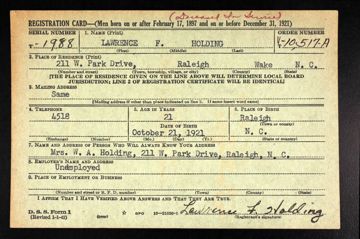 (Deceased In Service)
REGISTRATION CARD—(Men born on or after February 17, 1897 and on or before December 31, 1921)
SERIAL NUMBER 1. NAME (Print) ORDER NUMBER
T- 1988 LAWRENCE F. HOLDING 10,517-A
(First) (Middle) (Last)
2. PLACE OF RESIDENCE (Print)
211 W. Park Drive, Raleigh Wake N. C.
(Number and street) (Town, township, village, or city) (County) (State)
[THE PLACE OF RESIDENCE GIVEN ON THE LINE ABOVE WILL DETERMINE LOCAL BOARD
JURISDICTION; LINE 2 OF REGISTRATION CERTIFICATE WILL BE IDENTICAL]
3. MAILING ADDRESS
Same
[Mailing address if other than place indicated on line 2. If same insert word same]
4. TELEPHONE 5. AGE IN YEARS 6. PLACE OF BIRTH
4518 21 Raleigh
DATE OF BIRTH (Town or county)
October 21, 1921 N. C.
(Mo.) (Day) (Yr.) (State or country)
7. NAME AND ADDRESS OF PERSON WHO WILL ALWAYS KNOW YOUR ADDRESS
Mrs. W. A. Holding, 211 W. Park Drive, Raleigh, N. C.
8. EMPLOYER'S NAME AND ADDRESS
Unemployed
9. PLACE OF EMPLOYMENT OR BUSINESS
(Number and street or R. F. D. number) (Town) (County) (State)
I AFFIRM THAT I HAVE VERIFIED ABOVE ANSWERS AND THAT THEY ARE TRUE.
D. S. S. Form 1 GPO Lawrence F. Holding
(Revised 1-1-42) (Registrant's signature)